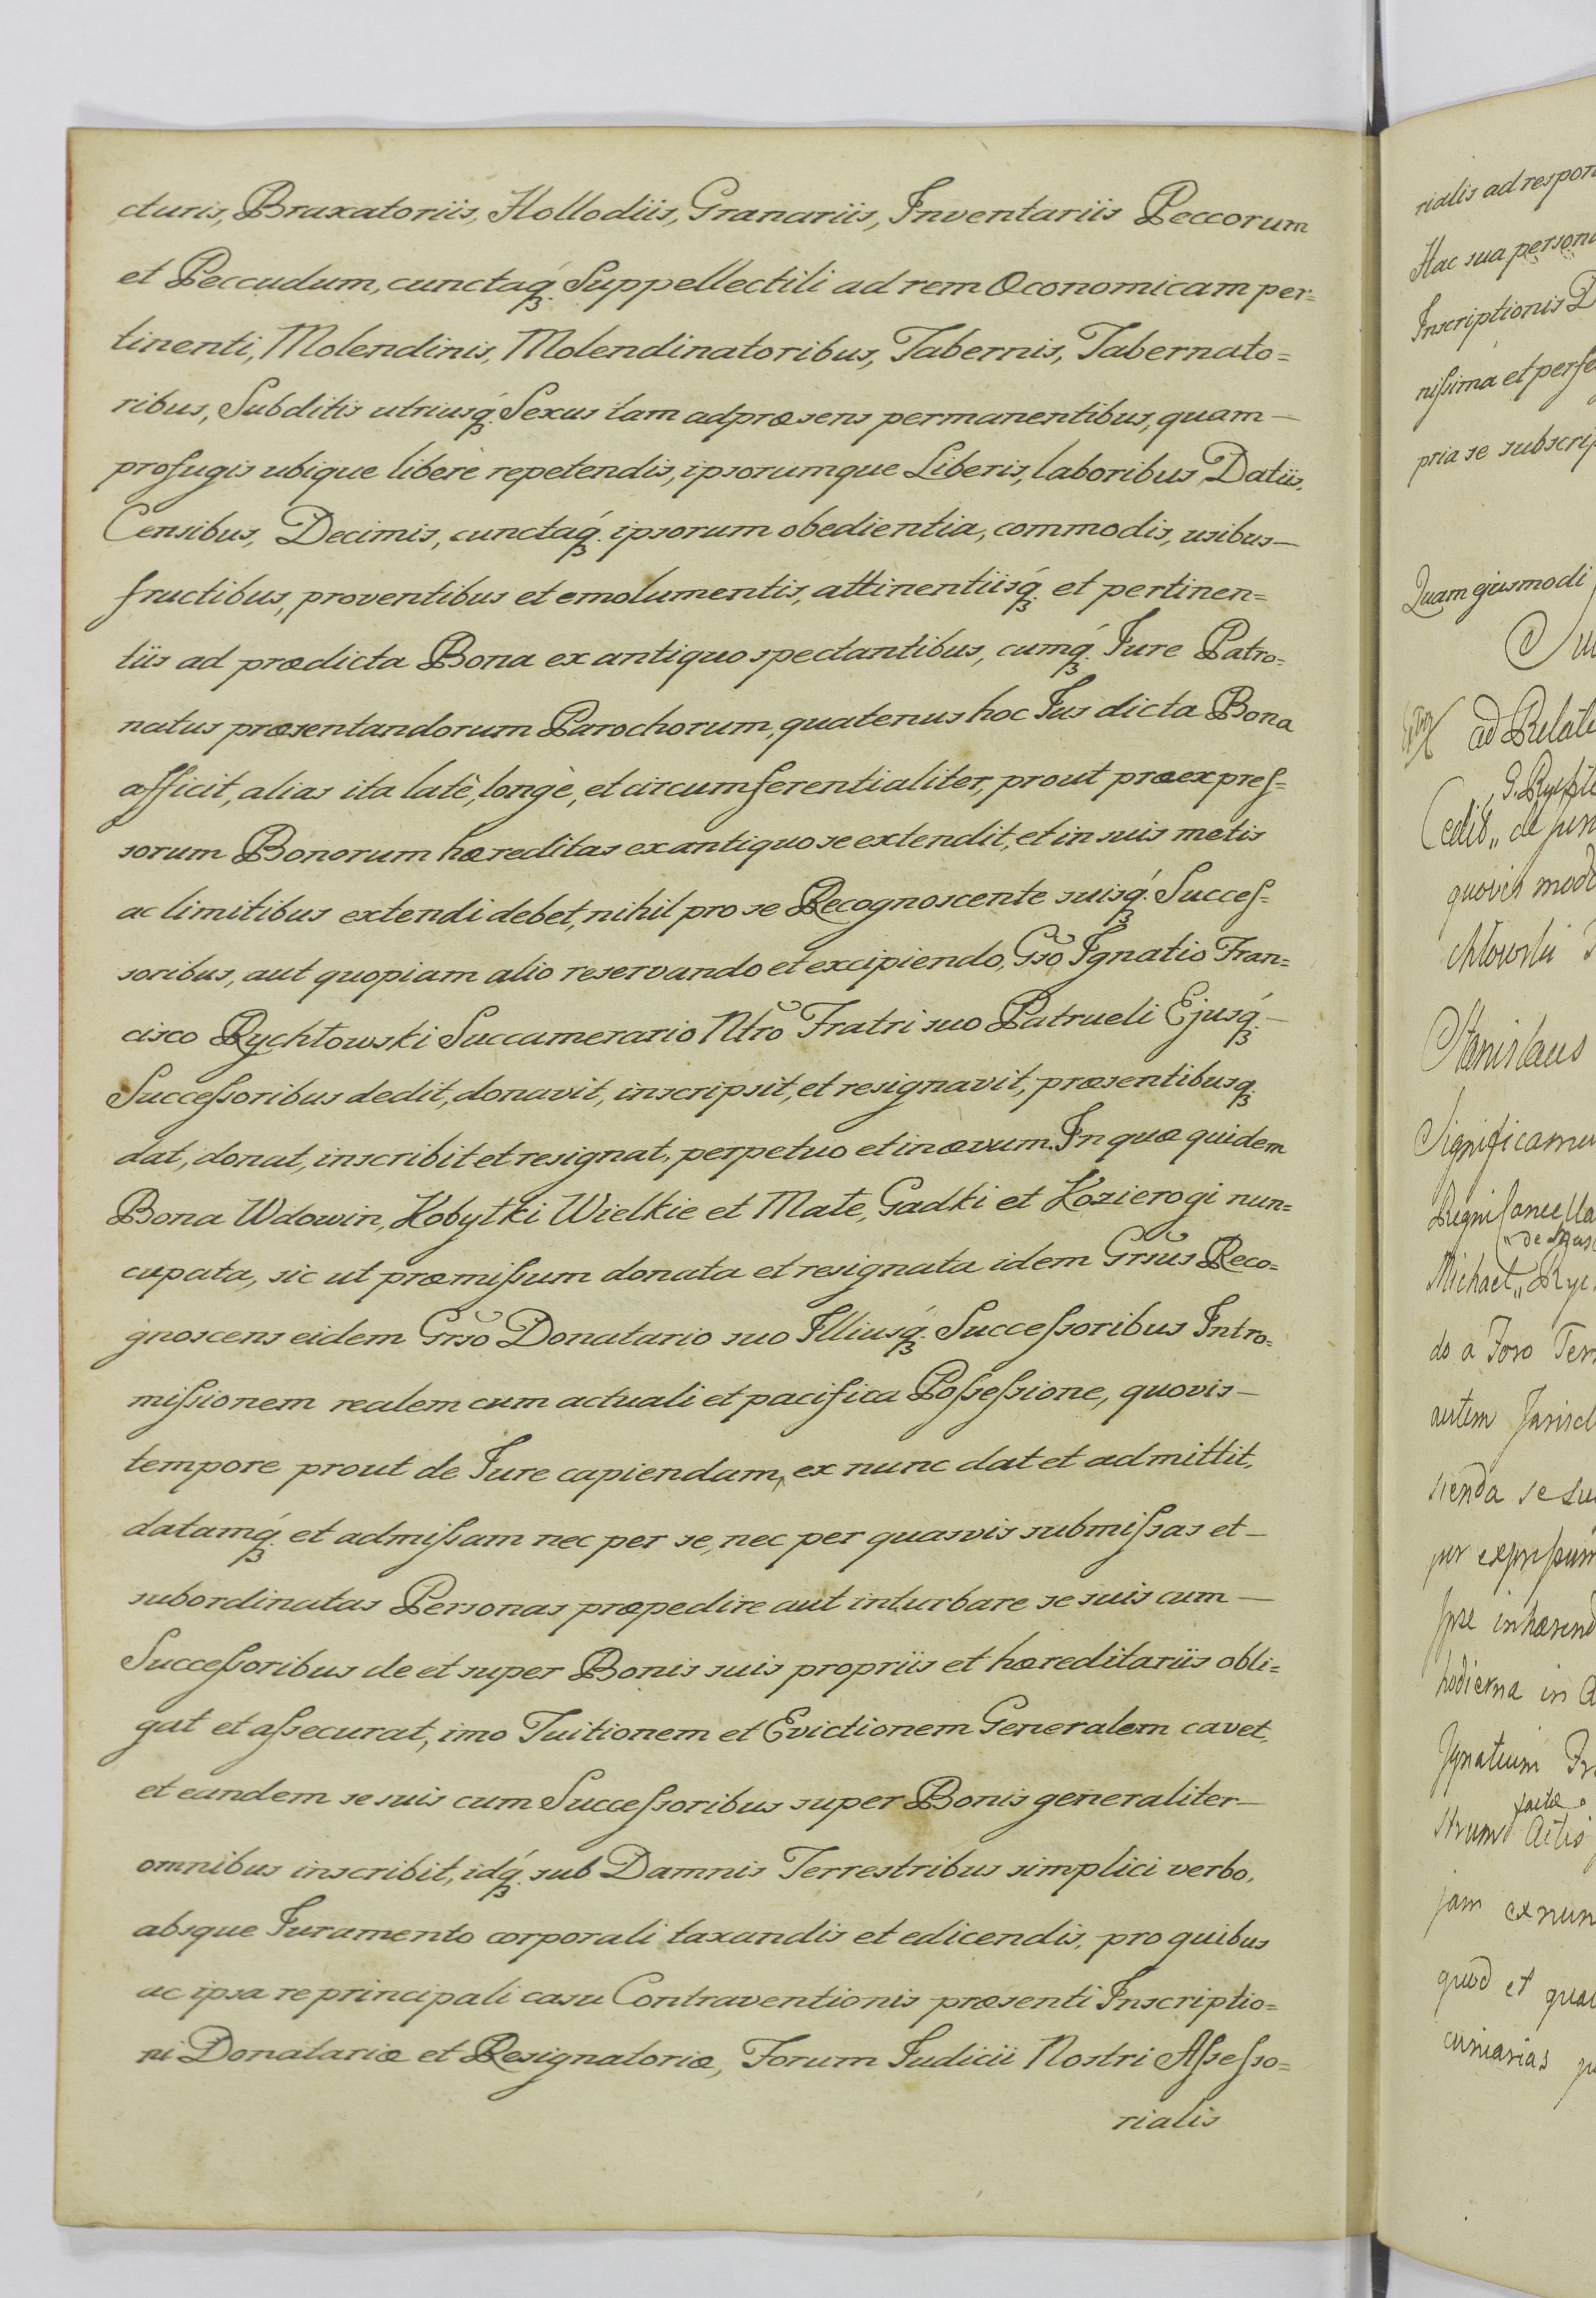 cturis, Braxatoriis, Hollodiis, Granariis, Inventariis Peccorum
et Peccudum, cunctaq́ꝫ Suppellectili ad rem Oeconomicam per=
tinenti, Molendinis, Molendinatoribus, Tabernis, Tabernato=
ribus, Subditis utriusq́ꝫ Sexus tam ad præsens permanentibus, quam —
profugis ubique liberè repetendis, ipsorumque Liberis, laboribus, Datiis,
Censibus, Decimis, cunctaq́ꝫ ipsorum obedientia, commodis, usibus —
fructibus, proventibus et emolumentis, attinentiisq́ꝫ et pertinen=
tiis ad prædicta Bona ex antiquo spectantibus, cumq́ꝫ Jure Patro=
natus præsentandorum Parochorum, quatenus hoc Jus dicta Bona
afficit, alias ita latè, longè, et circumferentialiter, prout præexpres=
sorum Bonorum hæreditas ex antiquo se extendit, et in suis metis
ac limitibus extendi debet, nihil pro se Recognoscente suisq́ꝫ Succes=
soribus, aut quopiam alio reservando et excipiendo, Gso Ignatio Fran=
cisco Rychłowski Succamerario Ntro Fratri suo Patrueli Ejusq́ꝫ —
Successoribus dedit, donavit, inscripsit, et resignavit, præsentibusqꝫ
dat, donat, inscribit et resignat, perpetuo et in ævum. In quæ quidem
Bona Wdowin, Kobyłki Wielkie et Małe, Gadki et Kozierogi nun=
cupata, sic ut præmissum donata et resignata idem Grsus Reco=
gnoscens eidem Grso Donatario suo Illiusq́ꝫ Successoribus Intro=
missionem realem cum actuali et pacifica Possessione, quovis —
tempore prout de Jure capiendam, ex nunc dat et admittit,
datamq́ꝫ et admissam nec per se, nec per quasvis submissas et —
subordinatas Personas præpedire aut inturbare se suis cum —
Successoribus de et super Bonis suis propriis et hæreditariis obli=
gat et assecurat, imo Tuitionem et Evictionem Generalem cavet,
et eandem se suis cum Successoribus super Bonis generaliter —
omnibus inscribit, idq́ꝫ sub Damnis Terrestribus simplici verbo,
absque Juramento corporali taxandis et edicendis, pro quibus
ac ipsa re principali casu Contraventionis præsenti Inscriptio=
ni Donatariæ et Resignatoriæ, Forum Judicii Nostri Assesso=
rialis
rialis ad respon
Hac sua person
Inscriptionis D
nissima et perfe
pria se subscrip
Quam ejusmodi
ad Relat
quovis modo
chłowski
Stanislaus
Significamu
Regni Cancella
Michael Ryc
do a Foro Ter
autem Jurisd
sienda se su
per expressum
hodierna in A
Ignatium Fr
factæ
Actis
jam ex nun
quod et qua